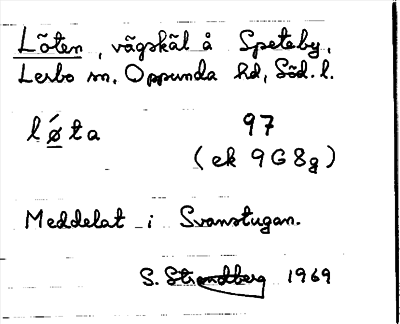 Löten, vägskäl å Speteby,
Lerbo sn, Oppunda hd, Söd. l.
lǿta 97
(ek 9G8g)
Meddelat i Svanstugan.
S. Strandberg 1969